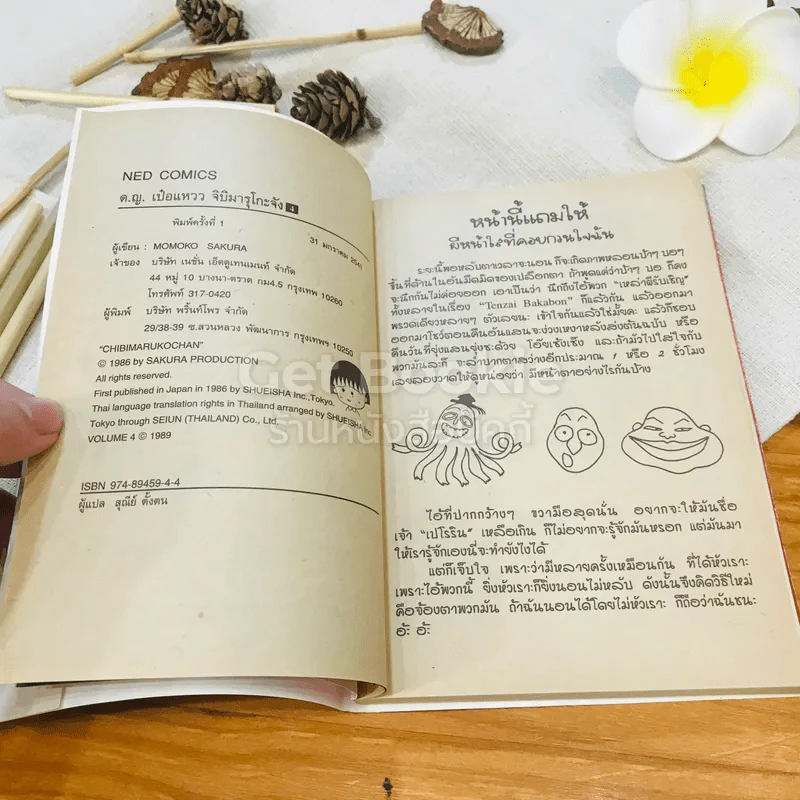 NED COMICS
ด.ญ. เป๋อแหวว จิบิมารุโกะจัง 4
พิมพ์ครั้งที่ 1
31 มกราคม 2541
ผู้เขียน : MOMOKO SAKURA
เจ้าของ บริษัท เนชั่น เอ็ดดูเทนเมนท์ จำกัด
44 หมู่ 10 บางนา-ตราด กม4.5 กรุงเทพ 10260
โทรศัพท์ 317-0420
ผู้พิมพ์ บริษัท พริ้นท์โพร จำกัด
29/38-39 ซ.สวนหลวง พัฒนาการ กรุงเทพฯ 10250
"CHIBIMARUKOCHAN"
© 1986 by SAKURA PRODUCTION
All rights reserved.
First published in Japan in 1986 by SHUEISHA Inc., Tokyo.
Thai language translation rights in Thailand arranged by SHUEISHA Inc.
Tokyo through SEIUN (THAILAND) Co., Ltd.
VOLUME 4 © 1989
ISBN 974-89459-4-4
ผู้แปล สุณีย์ ตั้งตน
หน้านี้แถมให้
ผีหน้าใสที่คอยกวนใจฉัน
ระยะนี้พอหลับตาเวลาจะนอน ก็จะเกิดภาพหลอนบ้าๆ บอๆ
ขึ้นที่ด้านในอันมืดมิดของเปลือกตา ถ้าพูดแต่ว่าบ้าๆ บอ ก็คง
จะนึกกันไม่ค่อยออก เอาเป็นว่า นึกถึงไอ้พวก "เหล่าผีรับเชิญ"
ทั้งหลายในเรื่อง "Tenzai Bakabon" ก็แล้วกัน แล้วออกมา
พรวดเดียวหลายๆ ตัวเลยนะ เข้าใจกันแล้วใช่มั้ยคะ แล้วก็ชอบ
ออกมาโชว์ตอนคืนอันแสนจะง่วงเหงาหลังส่งต้นฉบับ หรือ
คืนวันที่ยุ่งแสนยุ่งซะด้วย โอ๊ยเซ็งเซ็ง และถ้ามัวไปใส่ใจกับ
พวกมันละก็ จะลำบากตาสว่างอีกประมาณ 1 หรือ 2 ชั่วโมง
เลยลองวาดให้ดูหน่อยว่า มีหน้าตาอย่างไรกันบ้าง
Get Bookie
ร้านหนังสือบุ๊คกี้
ไอ้ที่ปากกว้างๆ ขวามือสุดนั่น อยากจะให้มันชื่อ
เจ้า "เปโรริน" เหลือเกิน ก็ไม่อยากจะรู้จักมันหรอก แต่มันมา
ให้เรารู้จักเองนี่จะทำยังไงได้
แต่ก็เจ็บใจ เพราะว่ามีหลายครั้งเหมือนกัน ที่ได้หัวเราะ
เพราะไอ้พวกนี้ ยิ่งหัวเราะก็ยิ่งนอนไม่หลับ ดังนั้นจึงคิดวิธีใหม่
คือจ้องตาพวกมัน ถ้าฉันนอนได้โดยไม่หัวเราะ ก็ถือว่าฉันชนะ
อ๊ะ อ๊ะ